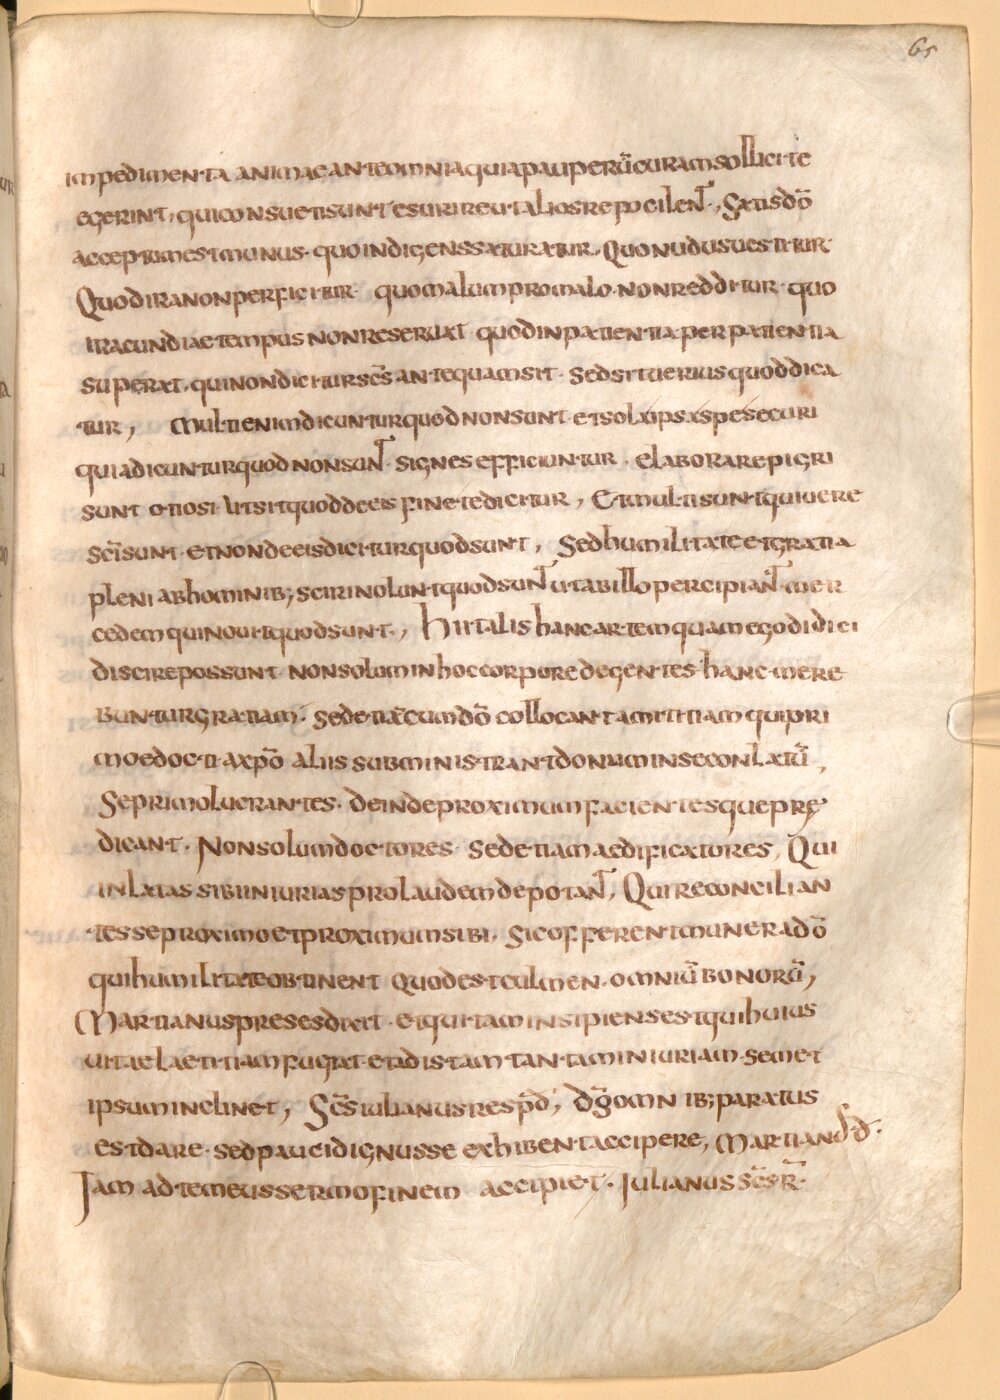 65
impedimenta animae ante omnia quia pauperū curam sollicite
egerint, qui consueti sunt esurire ut alios repocilent, Satis dō
acceptum est munus quo indigens saturatur, Quo nudus vestitur
Quod ira non perficitur quo malum pro malo non redditur quo
iracundiae tempus non reservat quod inpatientia per patientia
superat, qui non dicitur scs̄ antequam sit. Sed sit verius quod dica
tur, Multi enim dicuntur quod non sunt et sola ipsa spe securi
quia dicuntur quod non sunt signes efficiuntur. elaborare pigri
sunt otiosi ut sit quod de eis fine te dicitur, Et multi sunt qui vere
scī sunt et non de eis dicitur quod sunt, Sed humilitate et gratia
pleni ab hominib; sciri nolunt quod sunt ut ab illo percipiant mer
cedem qui novit quod sunt, Hii talis hanc artem quam ego didici
discire possunt non solum in hoc corpore degentes hanc mere
buntur gratiam. Sed etiā cum dō collocant amititiam qui pri
mo edocti a xpō aliis subministrant donum in se conlatū,
Se primo lucrantes. deinde proximum facientes que prę
dicant. Non solum doctores Sed etiam aedificatores, Qui
inlatas sibi iniurias pro laudem depotant, Qui reconcilian
tes se proximo et proximum sibi, sic offerent munera dō
qui humilitate obtinent quod est culmen omniū bonorū,
Martianus preses dixit et qui tam insipiens est qui huius
vitae laetitiam fugiat et ad istam tantam iniuriam semet
ipsum inclinet, Scs̄ iulianus resp̄d, dn̄s omnib; paratus
est dare sed pauci dignus se exhibent accipere, Martianus d̄.
Iam ad te meus sermo finem accipiet. Iulianus scs̄ R̄.